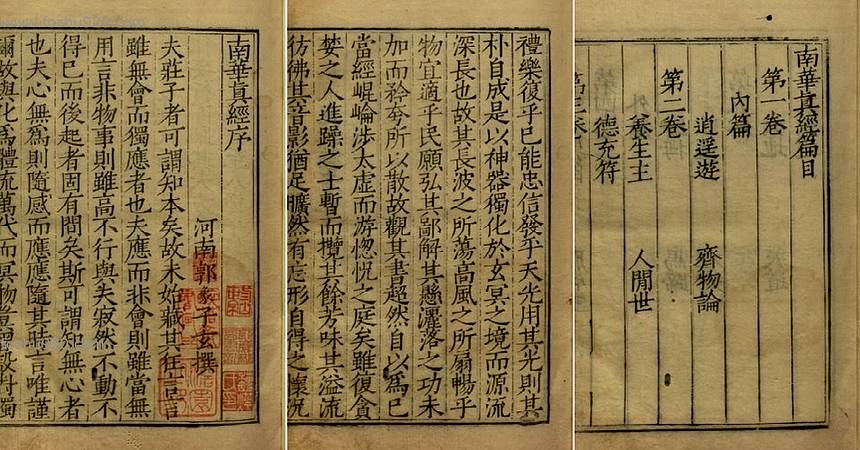 南華眞經序
河南郭象子玄撰
夫莊子者可謂知本矣故未始藏其狂言言
雖無會而獨應者也夫應而非會則雖當無
用言非物事則雖高不行與夫寂然不動不
得已而後起者固有間矣斯可謂知無心者
也夫心無爲則隨感而應應隨其時言唯謹
爾故與化爲體流萬代而冥物豈曾設對獨
禮樂復乎已能忠信發乎天光用其光則其
朴自成是以神器獨化於玄冥之境而源流
深長也故其長波之所蕩高風之所扇暢乎
物宜適乎民願弘其鄙解其懸灑落之功未
加而矜夸所以散故觀其書超然自以爲已
當經崐崘涉太虛而游惚怳之庭矣雖復貪
婪之人進躁之士暫而攬其餘芳味其溢流
彷彿其音影猶足曠然有忘形自得之懷況
南華眞經篇目
第一卷
內篇
逍遥遊 齊物論
第二卷
養生主 人閒世
德充符